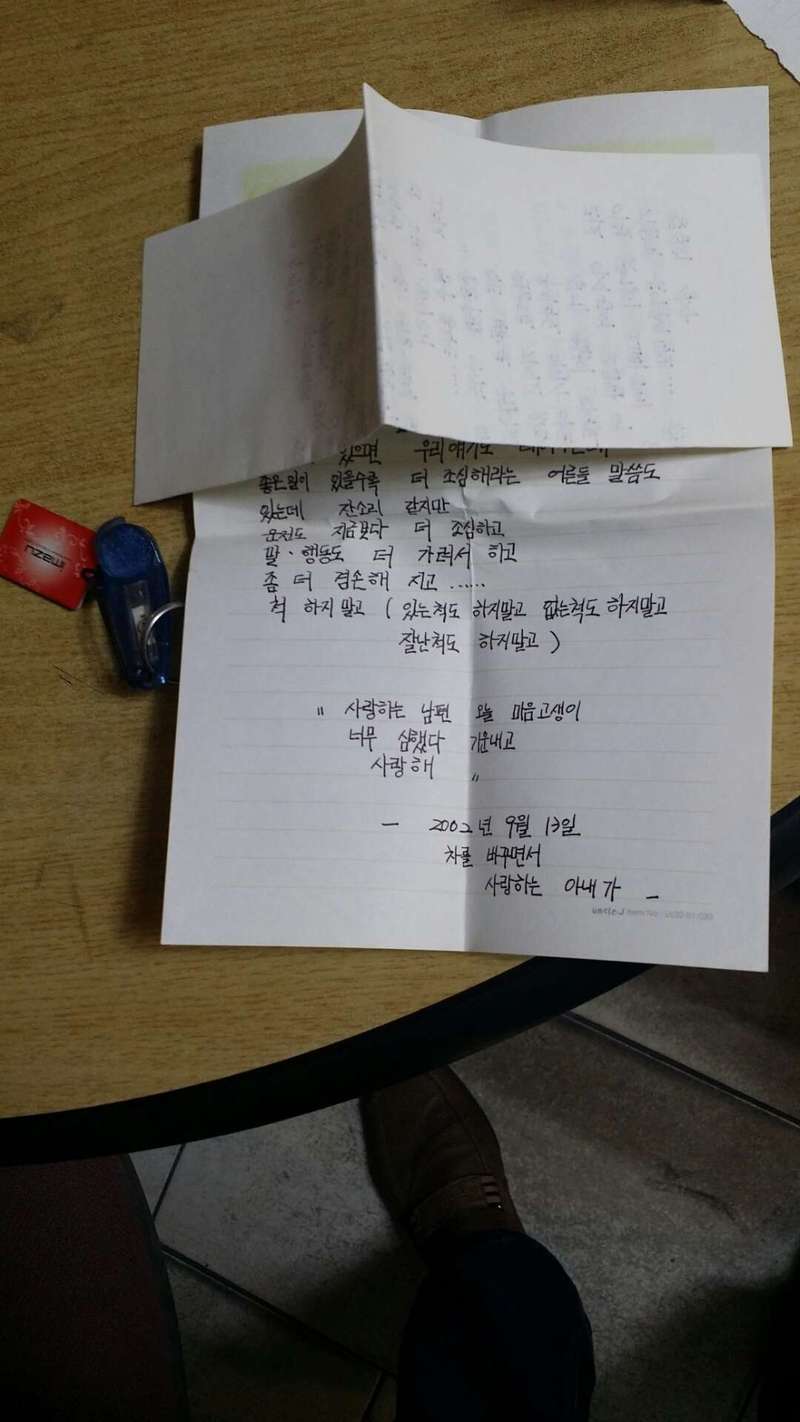 있으면 우리애기도
좋은일이 있을수록 더 조심해라는 어른들 말씀도
있는데 잔소리 같지만
운전도 지금보다 더 조심하고
말·행동도 더 가려서 하고
좀 더 겸손해 지고 ......
척 하지말고 ( 있는척도 하지말고 없는척도 하지말고
잘난척도 하지말고 )
" 사랑하는 남편 오늘 마음고생이
너무 심했다 기운내고
사랑해 "
— 2002년 9월 13일
차를 바꾸면서
사랑하는 아내가 —
imazu